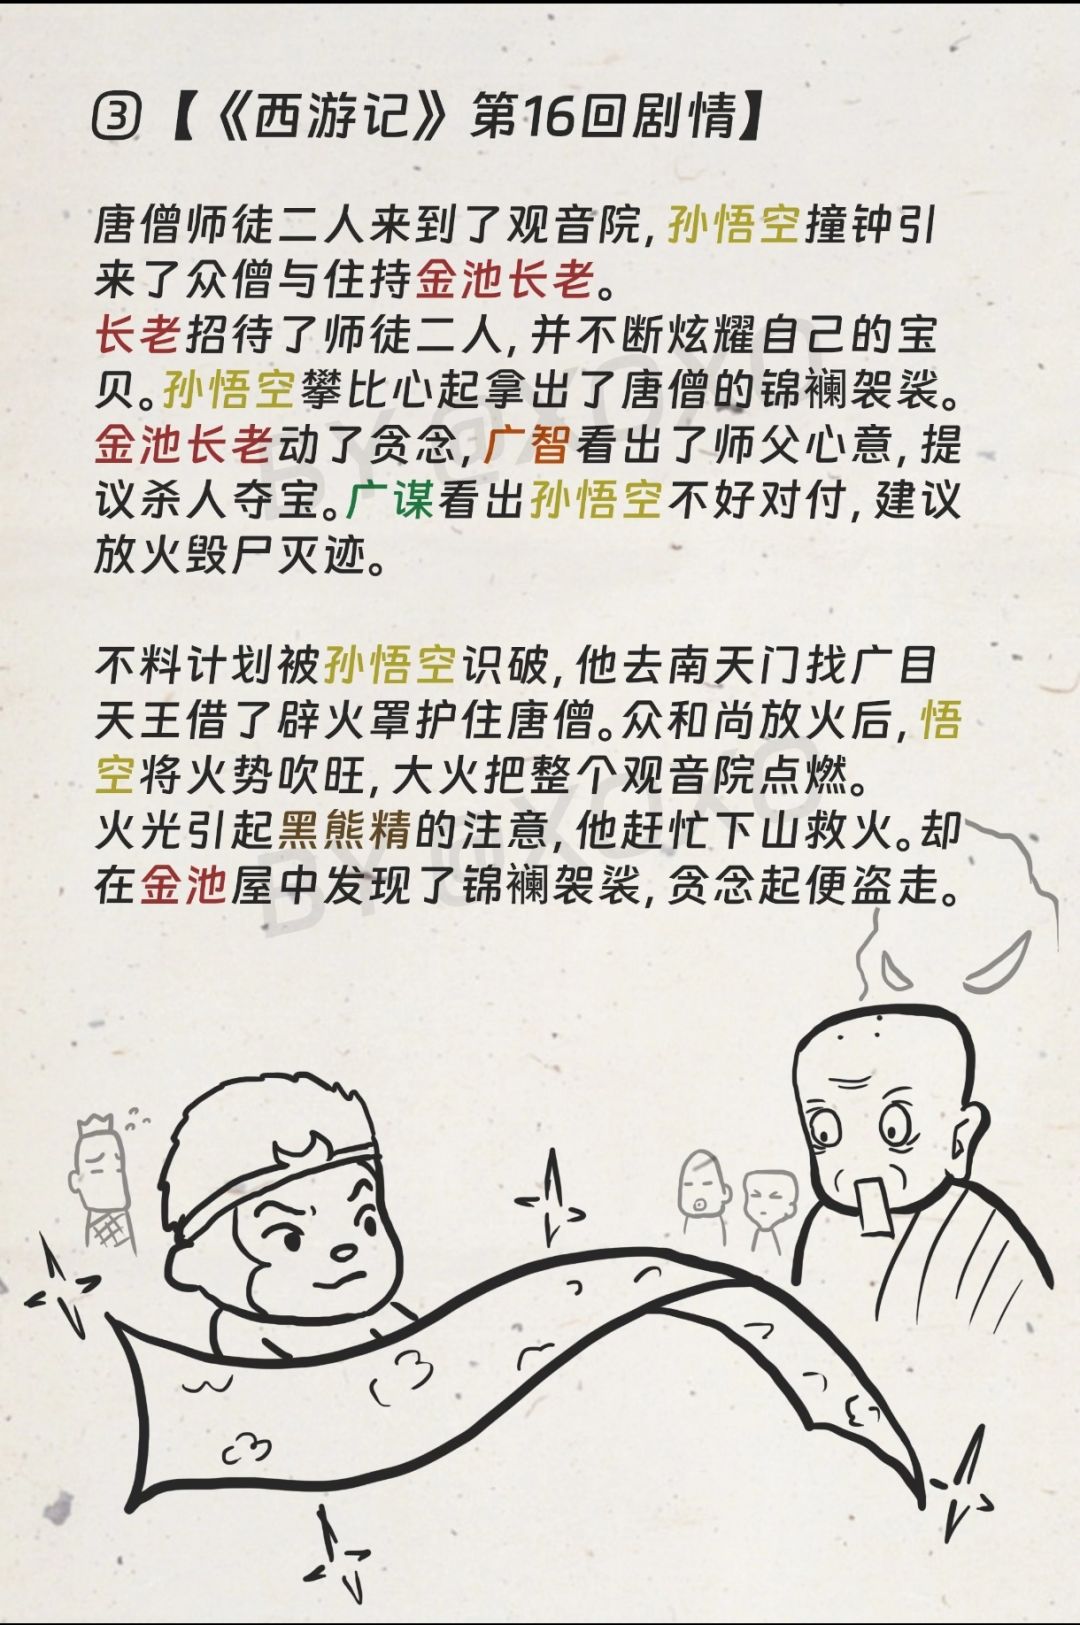 ③【《西游记》第16回剧情】
唐僧师徒二人来到了观音院,孙悟空撞钟引
来了众僧与住持金池长老。
长老招待了师徒二人,并不断炫耀自己的宝
贝。孙悟空攀比心起拿出了唐僧的锦襕袈裟。
金池长老动了贪念,广智看出了师父心意,提
议杀人夺宝。广谋看出孙悟空不好对付,建议
放火毁尸灭迹。
不料计划被孙悟空识破,他去南天门找广目
天王借了辟火罩护住唐僧。众和尚放火后,悟
空将火势吹旺,大火把整个观音院点燃。
火光引起黑熊精的注意,他赶忙下山救火。却
在金池屋中发现了锦襕袈裟,贪念起便盗走。
BY@XOXO
BY@XOXO